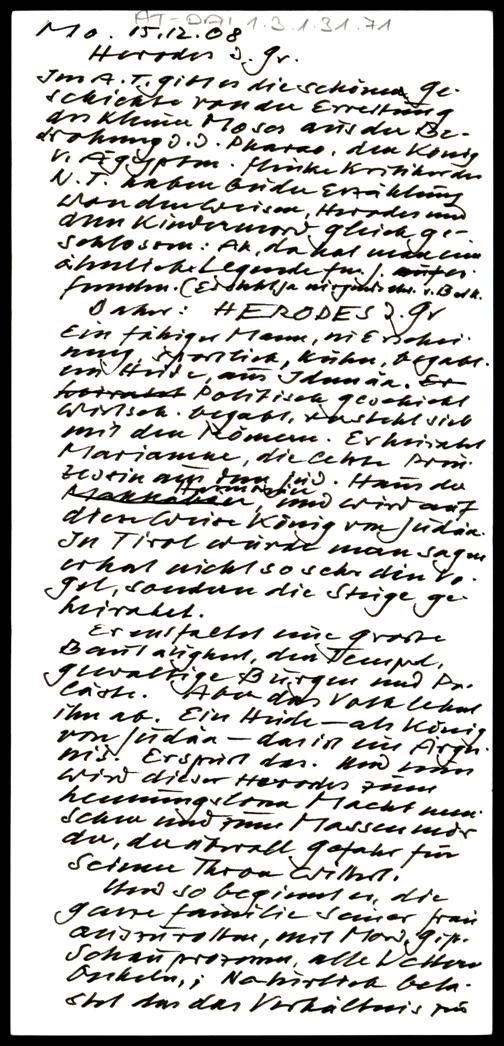 AT-DAI 1.3.1.31.71
Mo. 15.12.08
Herodes d. Gr.
Im A.T. gibt es die schöne Ge-
schichte von der Errettung
des kleinen Moses aus der Be-
drohung d. d. Pharao, den König
v. Ägypten. Kritiker des
N.T. haben bei der Erzählung
von den Weisen, Herodes und
dem Kindermord gleich ge-
schlossen: Ah, da hat man eine
ähnliche Legende
funden. (Er ja v. Beth.
Daher: HERODES d. Gr
Ein fähiger Mann, in Erschei-
nung, sportlich, kühn, begabt.
ein Heide, aus Idumäa. Er
heiratet Politisch geschickt
wirtsch. begabt, versteht sich
mit den Römern. Er heiratet
Mariamne, die letzte Prin-
zessin aus dem jüd. Haus der
Makkabäer, und wird auf
diese Weise König von Judäa.
In Tirol würde man sagen
er hat nicht so sehr den Vo-
gel, sondern die Steige ge-
heiratet.
Er entfaltet eine große
Bautätigkeit, den Tempel,
gewaltige Burgen und Pa-
läste. Aber das Volk lehnt
ihn ab. Ein Heide – als König
von Judäa – das ist ein Ärger-
nis. Er spürt das. Und nun
wird dieser Herodes zum
hemmungslosen Macht men-
schen und zum Massenmör-
der, der überall Gefahr für
seinen Thron wittert.
Und so beginnt er, die
ganze Familie seiner Frau
auszurotten, mit Mord, Gift,
Schauprozessen, alle Vettern
Onkeln,; Natürlich bela-
stet das das Verhältnis zu